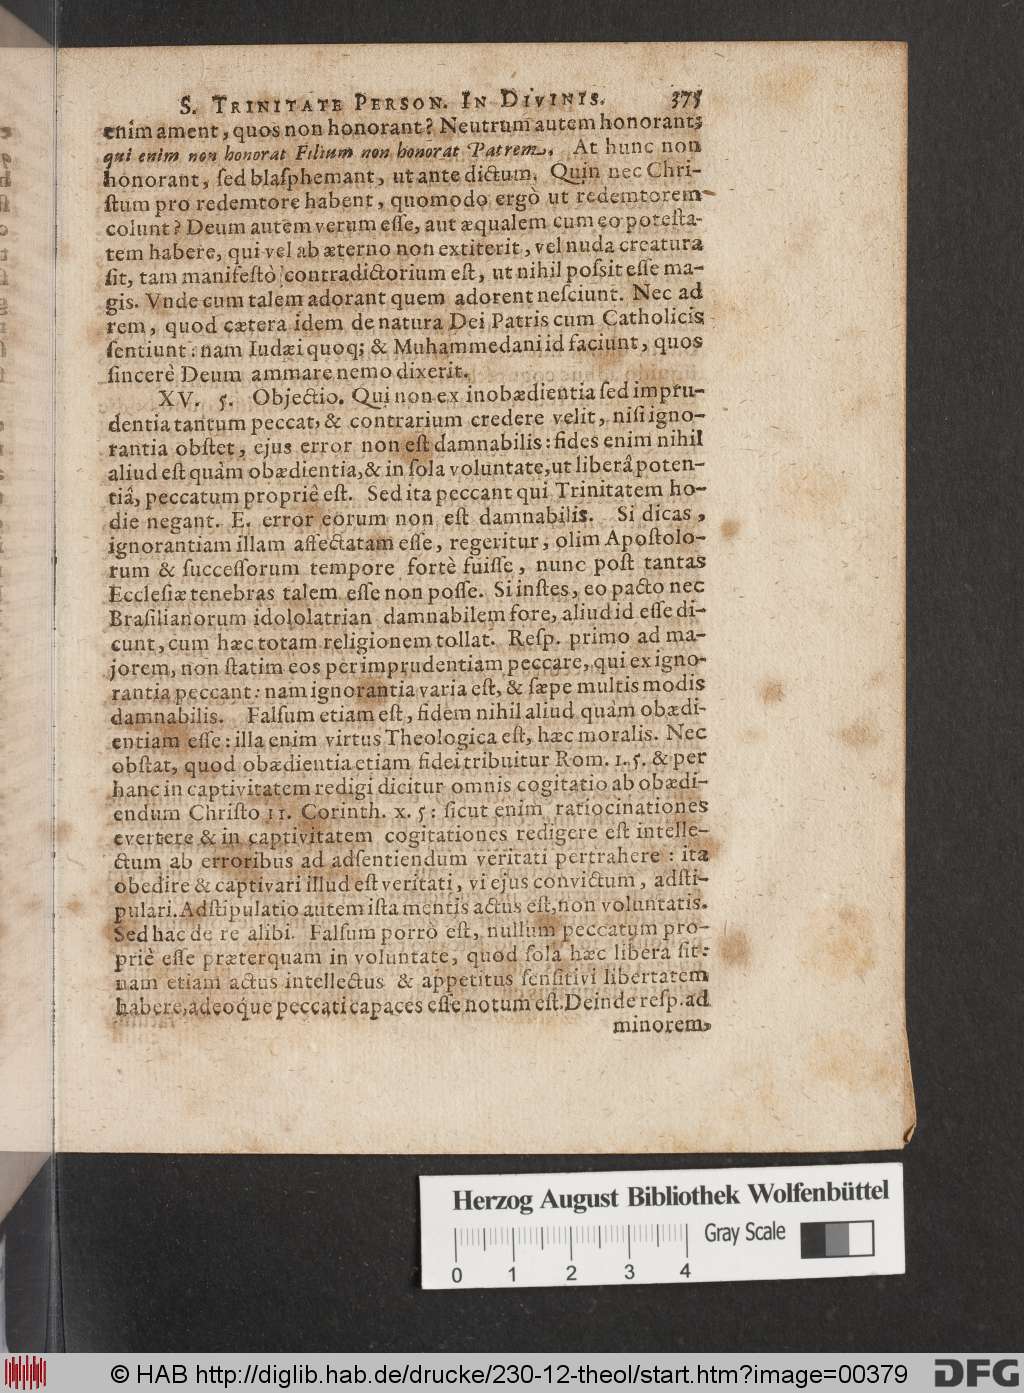 S. TRINITATE PERSON. IN DIVINIS. 375
enim ament, quos non honorant? Neutrum autem honorant;
qui enim non honorat Filium non honorat Patrem. At hunc non
honorant, ſed blaſphemant, ut ante dictum. Quin nec Chri-
ſtum pro redemtore habent, quomodo ergò ut redemtorem
colunt? Deum autem verum eſſe, aut æqualem cum eo poteſta-
tem habere, qui vel ab æterno non extiterit, vel nuda creatura
ſit, tam manifeſtò contradictorium eſt, ut nihil poſsit eſſe ma-
gis. Vnde cum talem adorant quem adorent neſciunt. Nec ad
rem, quod cætera idem de natura Dei Patris cum Catholicis
ſentiunt: nam Iudæi quoq; & Muhammedani id faciunt, quos
ſincerè Deum ammare nemo dixerit.
XV. 5. Objectio. Qui non ex inobædientia ſed impru-
dentia tantum peccat, & contrarium credere velit, niſi igno-
rantia obſtet, ejus error non eſt damnabilis: fides enim nihil
aliud eſt quàm obædientia, & in ſola voluntate, ut liberâ poten-
tiâ, peccatum propriè eſt. Sed ita peccant qui Trinitatem ho-
die negant. E. error eorum non eſt damnabilis. Si dicas,
ignorantiam illam affectatam eſſe, regeritur, olim Apoſtolo-
rum & ſucceſſorum tempore fortè fuiſſe, nunc poſt tantas
Eccleſiæ tenebras talem eſſe non poſſe. Si inſtes, eo pacto nec
Braſilianorum idololatrian damnabilem fore, aliud id eſſe di-
cunt, cum hæc totam religionem tollat. Reſp. primo ad ma-
jorem, non ſtatim eos per imprudentiam peccare, qui ex igno-
rantia peccant: nam ignorantia varia eſt, & ſæpe multis modis
damnabilis. Falſum etiam eſt, fidem nihil aliud quàm obædi-
entiam eſſe: illa enim virtus Theologica eſt, hæc moralis. Nec
obſtat, quod obædientia etiam fidei tribuitur Rom. 1. 5. & per
hanc in captivitatem redigi dicitur omnis cogitatio ab obædi-
endum Chriſto 11. Corinth. x. 5: ſicut enim ratiocinationes
evertere & in captivitatem cogitationes redigere eſt intelle-
ctum ab erroribus ad adſentiendum veritati pertrahere: ita
obedire & captivari illud eſt veritati, vi ejus convictum, adſti-
pulari. Adſtipulatio autem iſta mentis actus eſt, non voluntatis.
Sed hac de re alibi. Falſum porrò eſt, nullum peccatum pro-
priè eſſe præterquam in voluntate, quod ſola hæc libera ſit:
nam etiam actus intellectus & appetitus ſenſitivi libertatem
habere, adeoque peccati capaces eſſe notum eſt. Deinde reſp. ad
minorem,
Herzog August Bibliothek Wolfenbüttel
Gray Scale
0 1 2 3 4
© HAB http://diglib.hab.de/drucke/230-12-theol/start.htm?image=00379
DFG